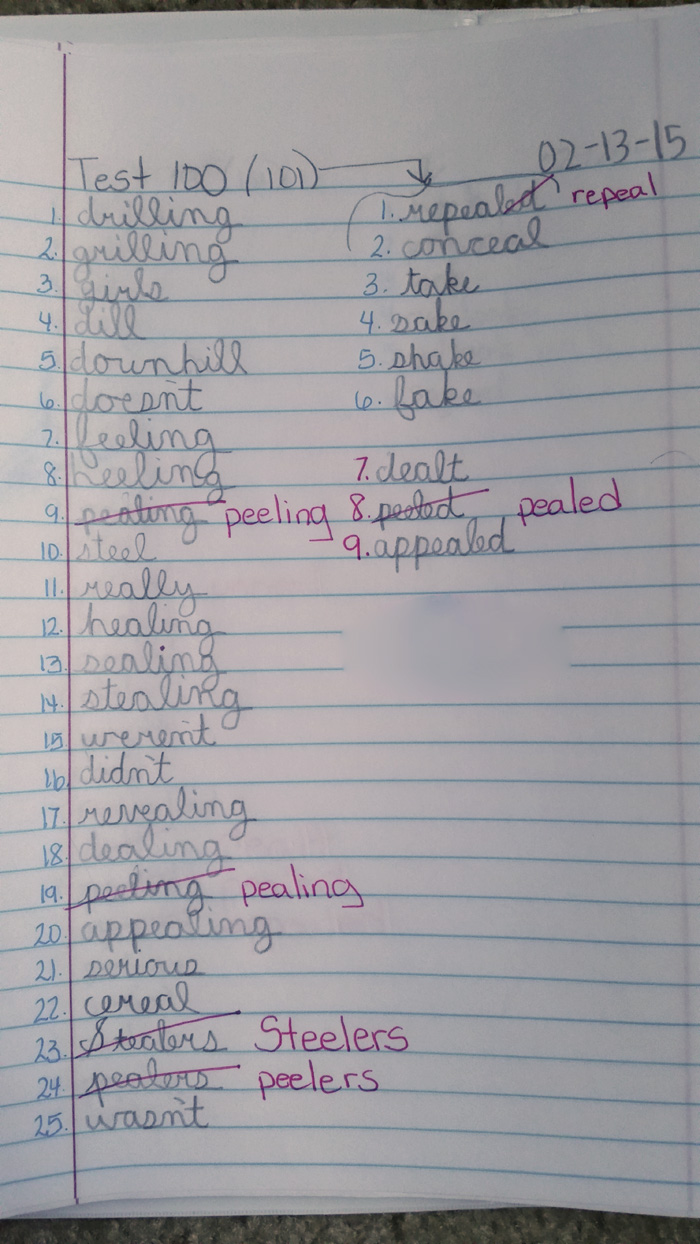 02-13-15
Test 100 (101)
1. drilling
2. grilling
3. girls
4. dill
5. downhill
6. doesn't
7. feeling
8. heeling
9. pealing peeling
10. steel
11. really
12. healing
13. sealing
14. stealing
15 weren't
16. didn't
17. revealing
18. dealing
19. peeling pealing
20. appealing
21. serious
22. cereal
23. Stealers Steelers
24. pealers peelers
25. wasn't
1. repealed repeal
2. conceal
3. take
4. sake
5. shake
6. fake
7. dealt
8. peeled pealed
9. appealed